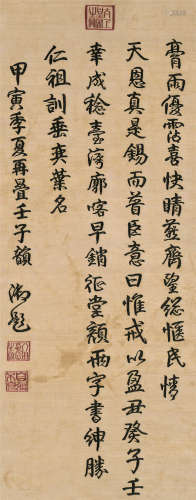 膏雨優霑喜快晴慈齋望總愜民情
天恩真是錫而普臣意曰惟戒以盈丑癸子壬
幸成稔臺澪廓喀早銷征堂顏兩字書紳勝
仁祖訓垂奕葉名
甲寅季夏再疊壬子韻
御題